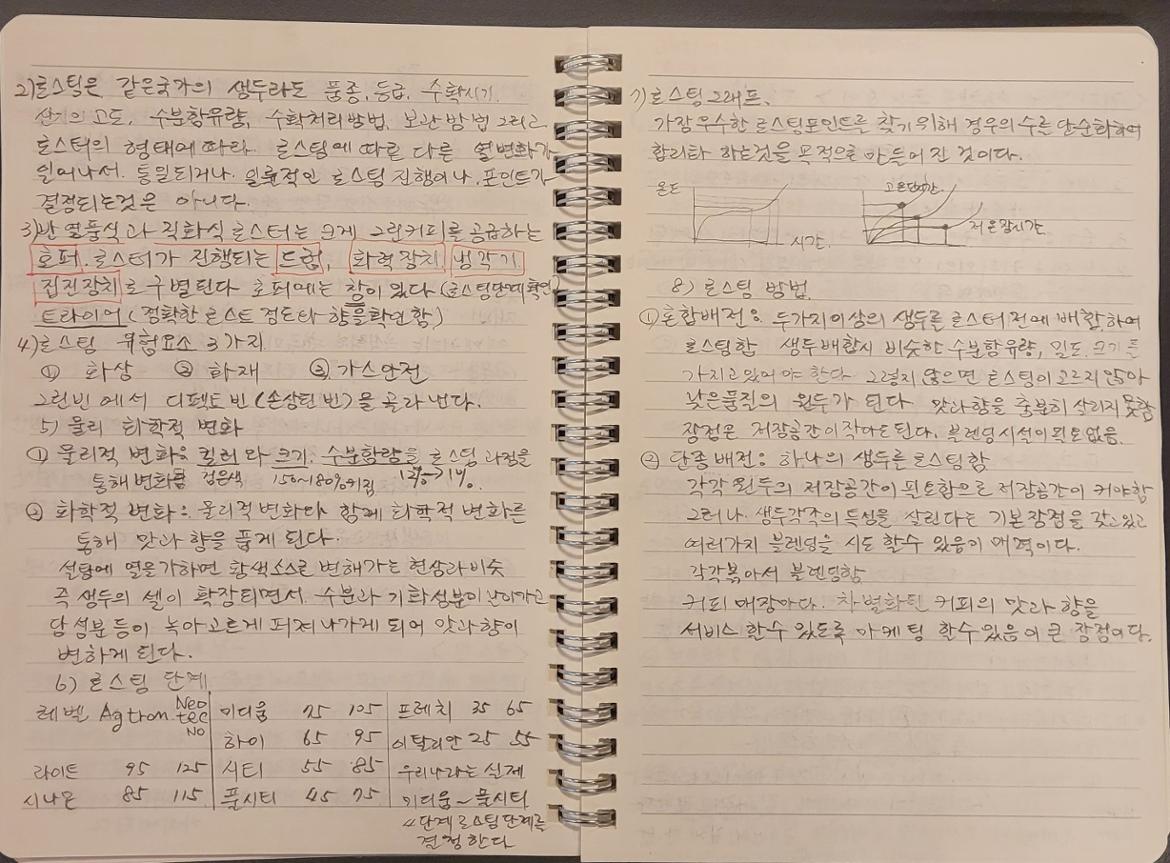 2) 로스팅은 같은국가의 생두라도 품종, 등급, 수확시기.
산지의 고도, 수분함유량, 수확처리방법, 보관방법 그리고
로스터의 형태에 따라. 로스팅에 따른 다른 열변화가
일어나서. 통일되거나. 일률적인 로스팅 진행이나. 포인트가
결정되는것은 아니다.
3) 반열풍식과 직화식로스터는 크게 그린커피를 공급하는
호퍼. 로스터가 진행되는 드럼, 화력장치 냉각기
집진장치로 구별된다 호퍼에는 창이 있다 (로스팅단계 확인)
트라이어 (정확한 로스트 정도와 향을 확인함)
4) 로스팅 위험요소 3가지
① 화상 ② 화재 ③ 가스안전
그린빈에서 디펙트빈(손상된 빈)을 골라낸다.
5) 물리 화학적 변화
① 물리적 변화: 컬러와 크기. 수분함량을 로스팅 과정을
통해 변화를 검은색 150~180% 커짐 12%→1%.
② 화학적 변화: 물리적변화와 함께 화학적 변화를
통해 맛과 향을 품게 된다.
설탕에 열을가하면 황색소스로 변해가는 현상과 비슷
즉 생두의 셀이 확장되면서. 수분과 기화성분이 날아가고
당성분등이 녹아고르게 퍼져나가게 되어 맛과향이
변하게 된다.
6) 로스팅 단계
레벨 Agtron Neo tec NO 미디움 75 105 프렌치 35 65
하이 65 95 이탈리안 25 55
라이트 95 125 시티 55 85 우리나라는 실제
시나몬 85 115 풀시티 45 75 미디움~풀시티
4단계 로스팅단계를
결정한다
7) 로스팅그래프.
가장우수한 로스팅포인트를 찾기위해 경우의 수를 단순화하여
합리화 하는것을 목적으로 만들어진 것이다.
온도 고온단시간
시간. 저온장시간
8) 로스팅 방법.
① 혼합배전: 두가지이상의 생두를 로스터전에 배합하여
로스팅함 생두배합시 비슷한 수분함유량, 밀도, 크기를
가지고있어야 한다 그렇지 않으면 로스팅이 고르지 않아
낮은품질의 원두가 된다. 맛과향을 충분히 살리지 못함
장점은 저장공간이 작아도된다. 블렌딩시설이 필요없음.
② 단종배전: 하나의 생두를 로스팅함
각각 원두의 저장공간이 필요함으로 저장공간이 커야함
그러나. 생두각각의 특성을 살린다는 기본장점을 갖고있고
여러가지 블렌딩을 시도 할수 있음이 매력이다.
각각볶아서 블렌딩함
커피 매장마다. 차별화된 커피의 맛과 향을
서비스 할수 있도록 마케팅 할수있음이 큰 장점이다.